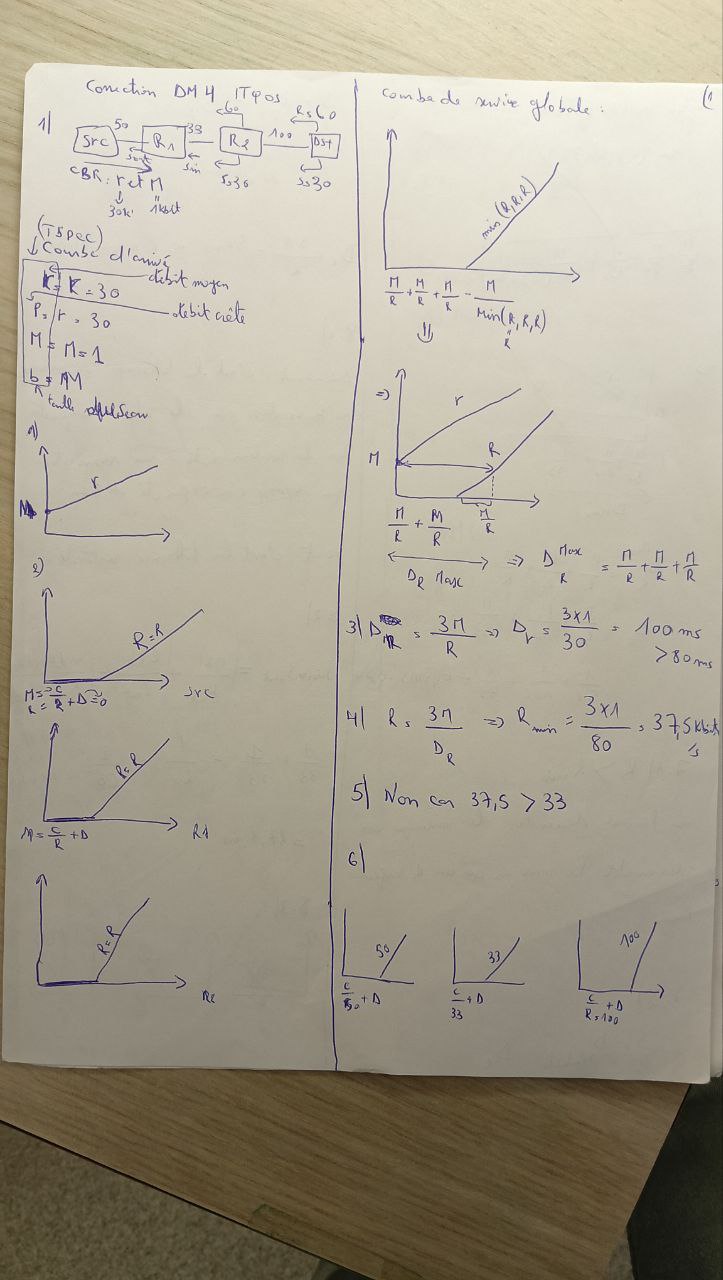 Correction DM4 ITqos
1)
Src 50 R1 33 R2 60 100 Rs60 Dst
Sout Sin Ss30 Ss30
CBR : r et M
30k 1kbit
(TSpec)
Courbe d'arrivé
r = 30 débit moyen
p = r = 30 débit crête
M = M = 1
b = M
1)
M r
2)
R=R
= C/R + D = 0 src
R=R
= C/R + D R1
R=R
R2
Courbe de service globale : (1
min(R,R,R)
M/R + M/R + M/R - M/Min(R,R,R)
R
=>
r
M R
M/R + M/R M/R
DR Max => DR Max = M/R + M/R + M/R
3) DR = 3M/R => Dr = 3x1/30 = 100 ms
> 80 ms
4) R = 3M/DR => Rmin = 3x1/80 = 37,5 kbit/s
5) Non car 37,5 > 33
6)
50 33 100
C/50 + D C/33 + D C/R=100 + D